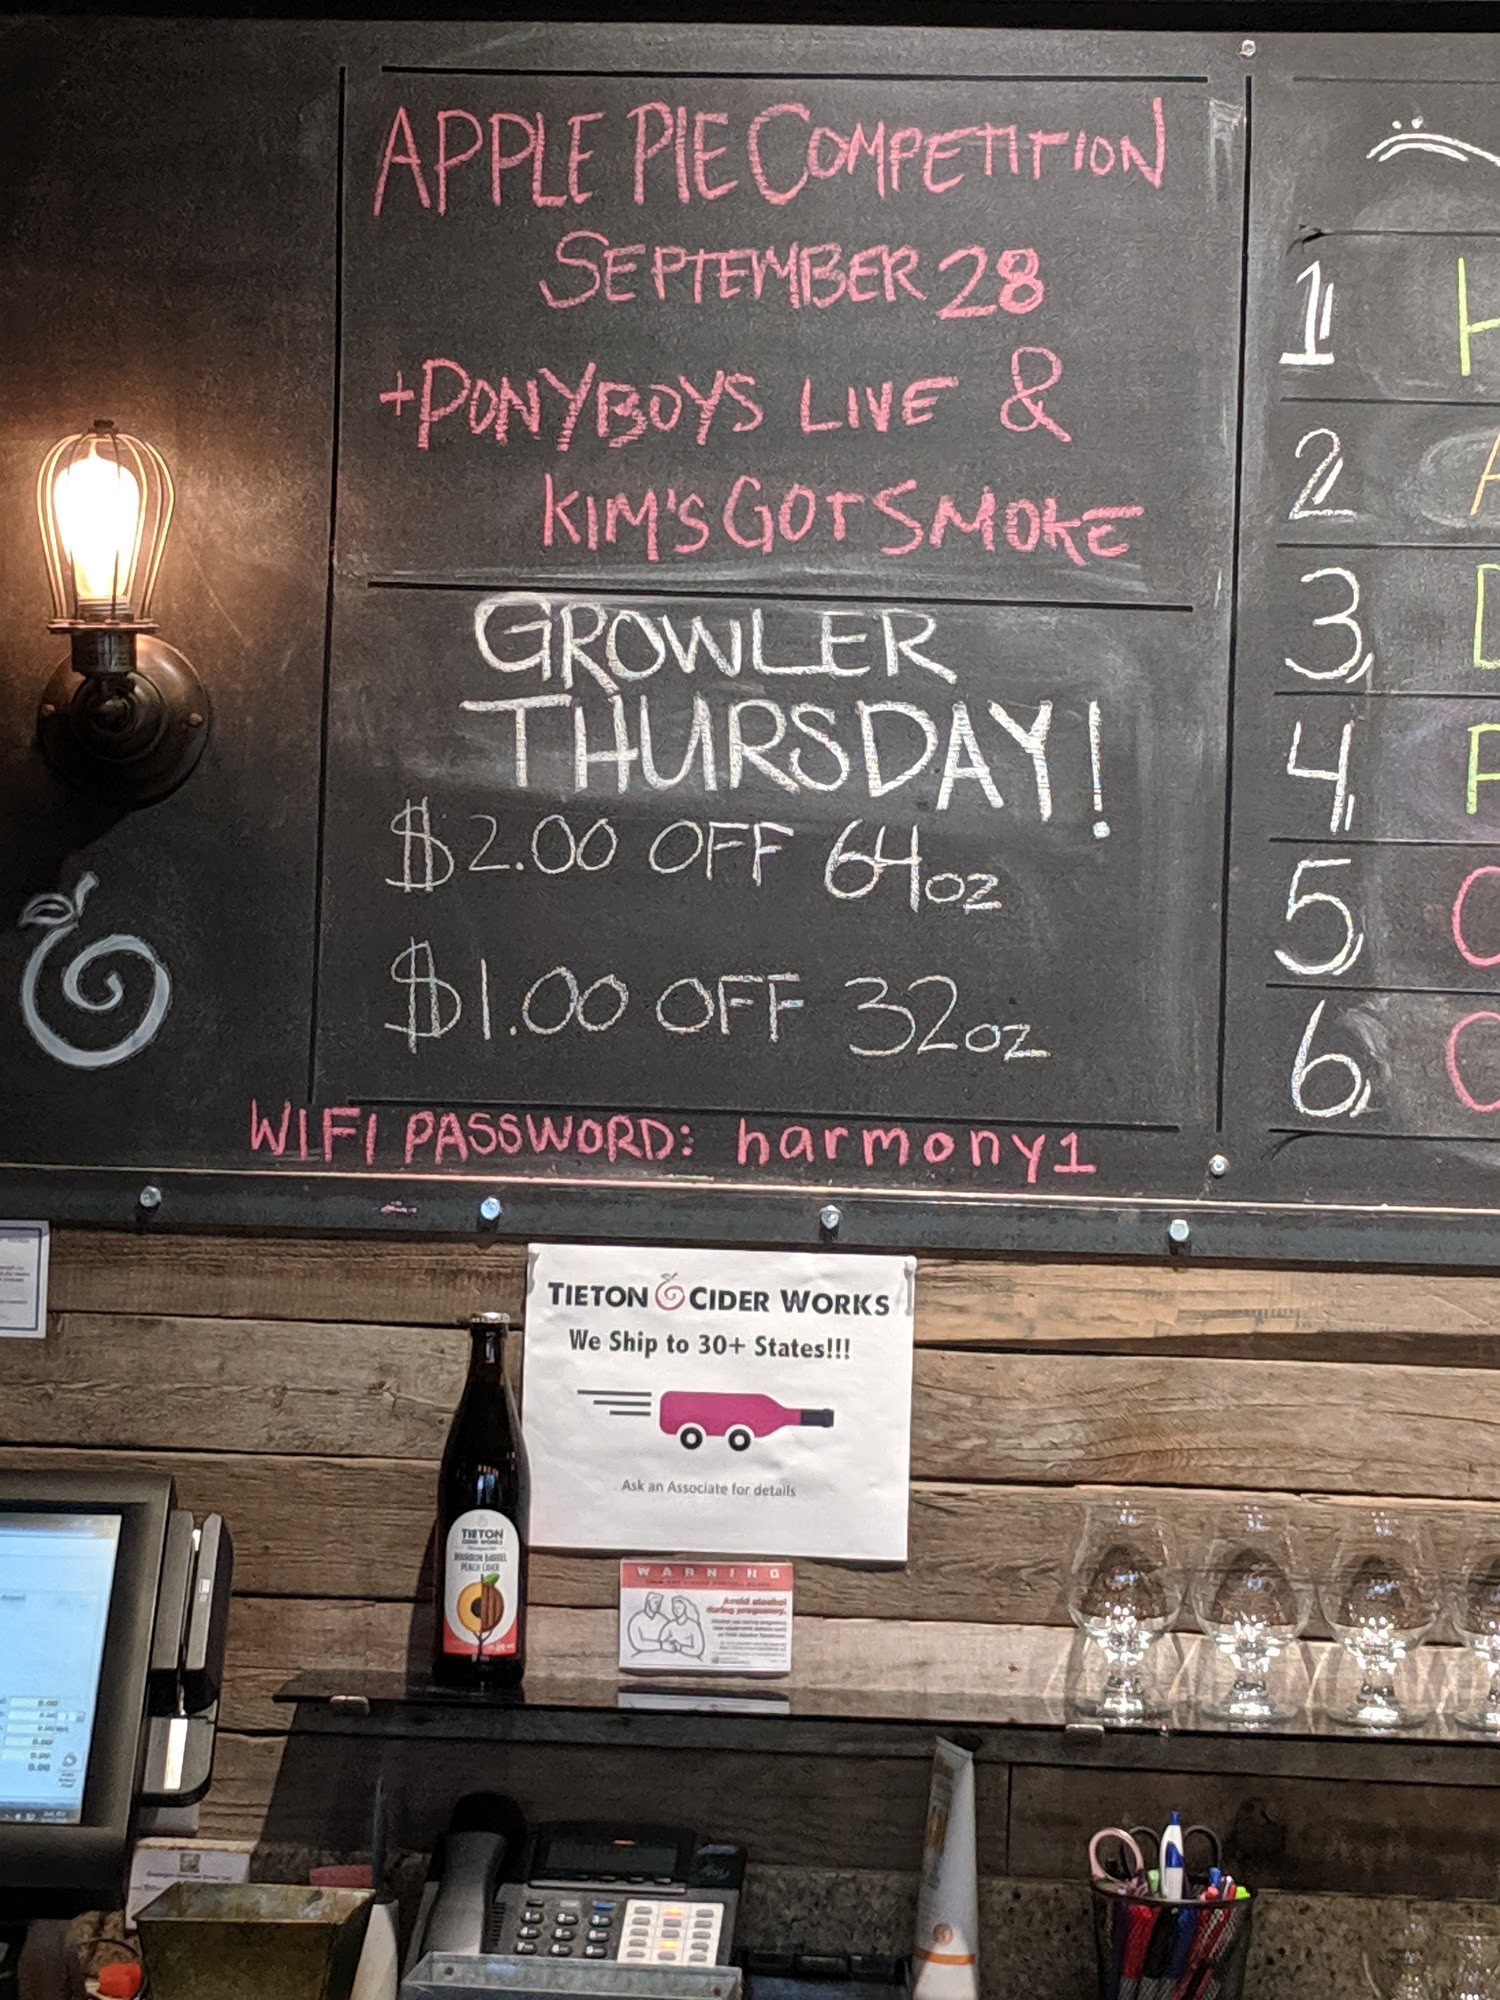 APPLE PIE COMPETITION
SEPTEMBER 28
+PONYBOYS LIVE &
KIM'S GOT SMOKE
GROWLER
THURSDAY!
$2.00 OFF 64oz
$1.00 OFF 32oz
WIFI PASSWORD: harmony1
1
2
3
4
5
6
TIETON CIDER WORKS
We Ship to 30+ States!!!
Ask an Associate for details
TIETON
CIDER WORKS
BOURBON BARREL
PEACH CIDER
WARNING
Avoid alcohol
during pregnancy.